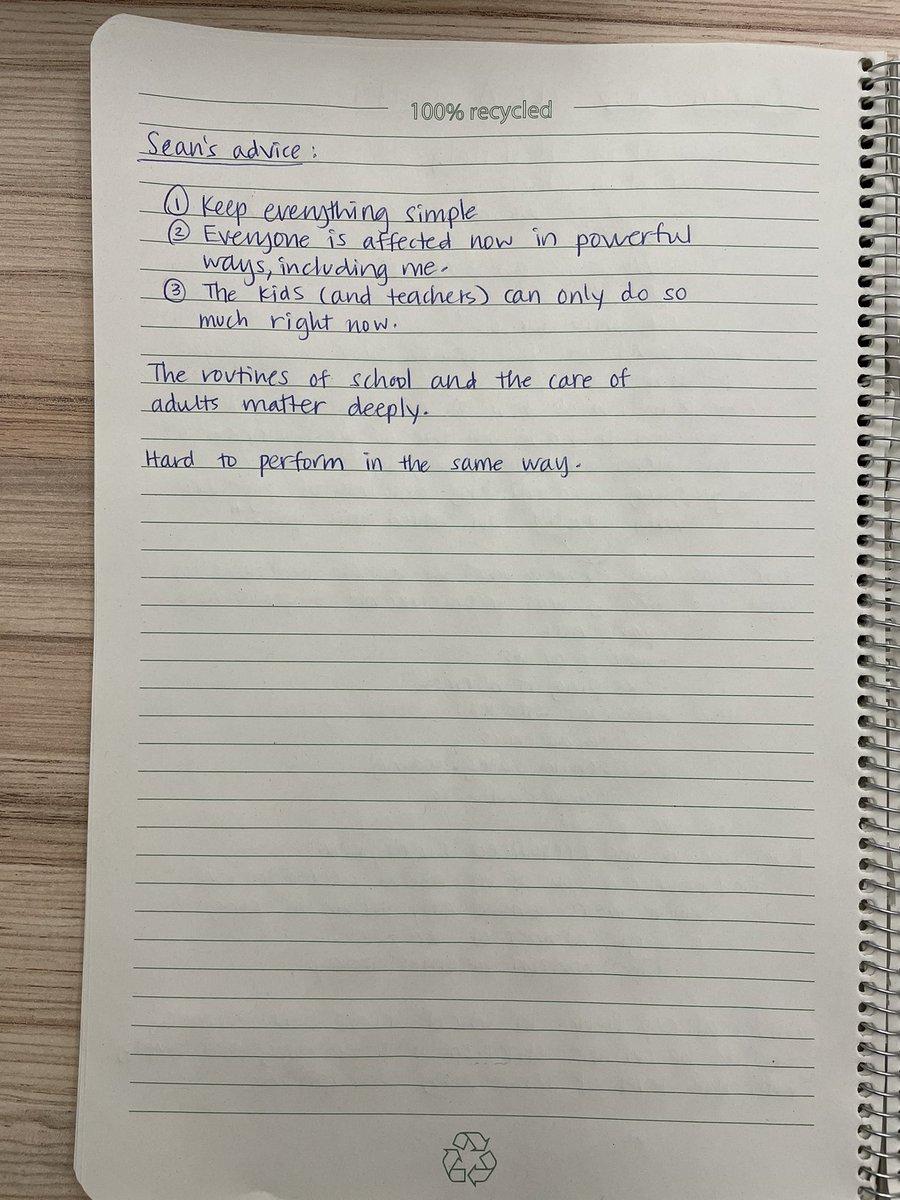 100% recycled
Sean's advice:
① Keep everything simple
② Everyone is affected now in powerful
ways, including me.
③ The kids (and teachers) can only do so
much right now.
The routines of school and the care of
adults matter deeply.
Hard to perform in the same way.